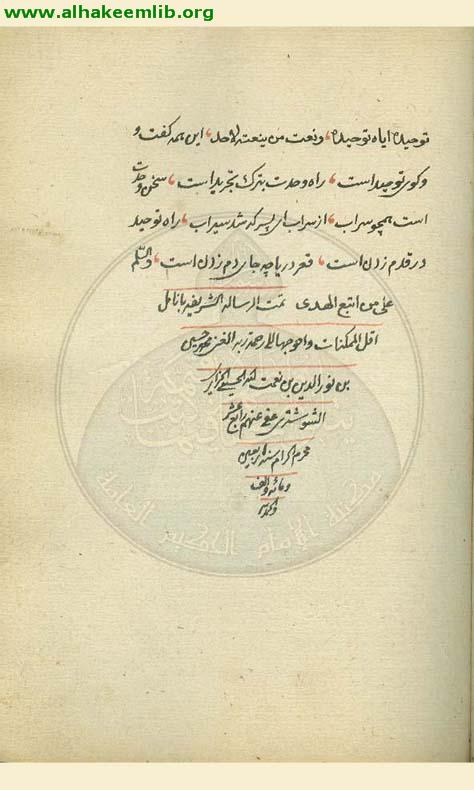 www.alhakeemlib.org
توحیده ایاه توحیده، ونعت من ینعته لاحد، این همه گفت و
و کوی توحید است، راه وحدت بترک تجرید است، سخن وحدت
است همچو سراب، از سراب ای پسر که شد سیراب، راه توحید
در قدم زدن است، قعر دریا چه جای دم زدن است، والسلم
علی من اتبع الهدی تمت الرساله الشریفه بانامل
اقل الممکنات واحوجها الی رحمة ربه الغنی محمد حسین
بن نور الدین بن نعمت الله الحسینی الجزایری
الشوشتری عفی عنهم رابع عشر
محرم الحرام سنه اربعین
ومائه والف
مكتبة الإمام الحكيم العامة